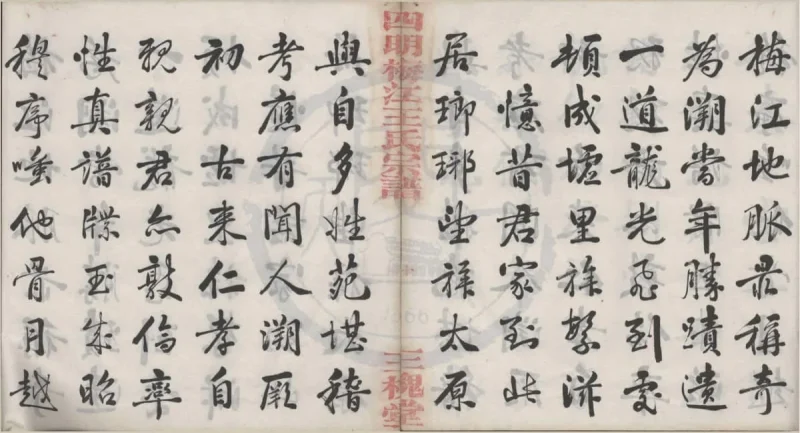 梅江地脈最稱奇
為溯當年勝蹟遺
一道龍光飛到處
頓成墟里族繁滋
憶昔君家到此
居瑯琊望族太原
四明梅江王氏宗譜
三槐堂
與自多姓苑堪稽
考應有聞人溯厥
初 古来仁孝自
親親君亦敦倫率
性真譜牒玉成昭
穆序嗤他骨月越